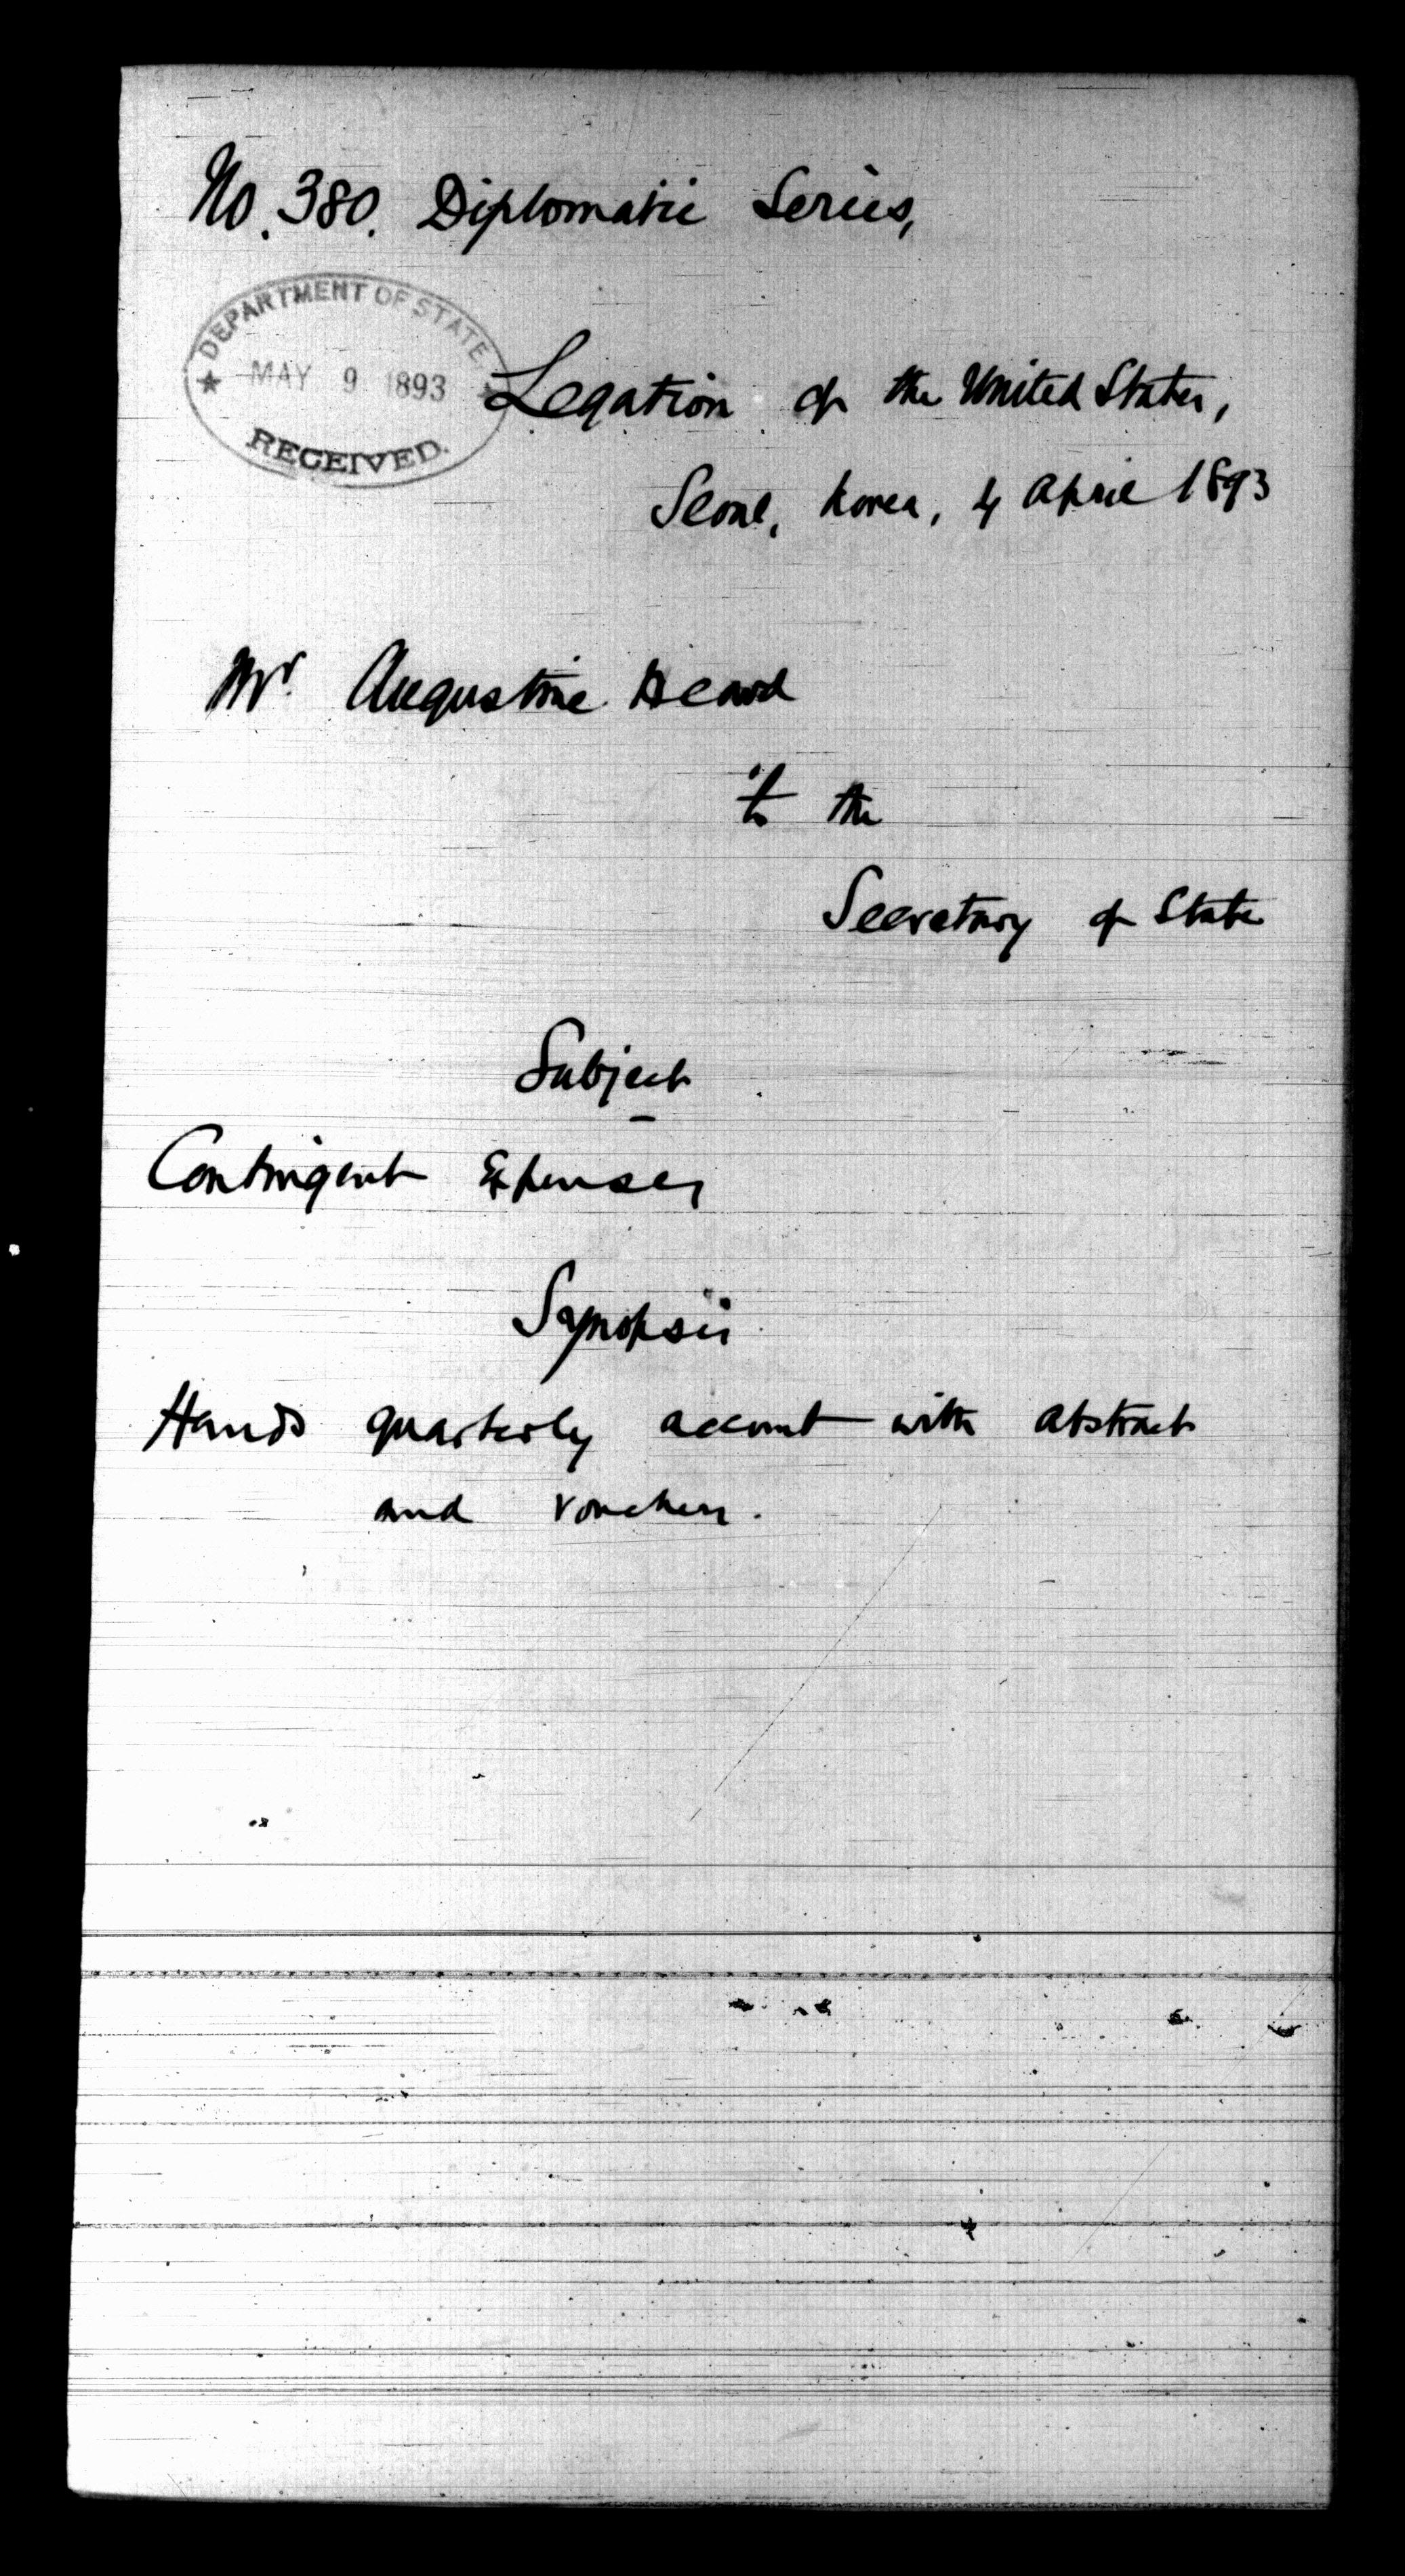 No. 380. Diplomatic Series,
DEPARTMENT OF STATE
MAY 9 1893
RECEIVED.
Legation of the United States,
Seoul, Korea, 4 April 1893
Mr. Augustine Heard
to the
Secretary of State
Subject
Contingent Expenses
Synopsis
Hands quarterly account with abstract
and vouchers.